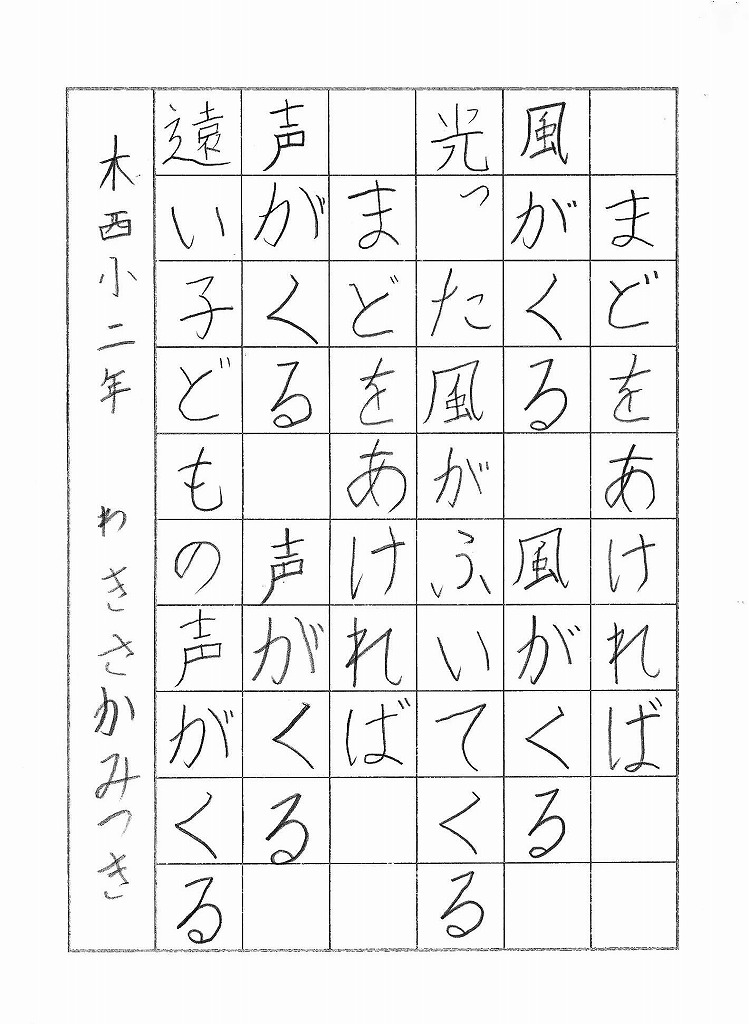 まどをあければ
風がくる　風がくる
光った風がふいてくる
まどをあければ
声がくる　声がくる
遠い子どもの声がくる
木西小二年　わきさかみつき